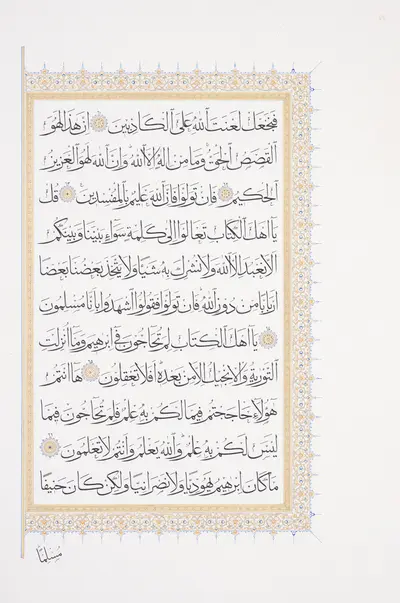 فنجعل لعنت الله على الكاذبين ان هذا لهو
القصص الحق وما من اله الا الله وان الله لهو العزيز
الحكيم فان تولوا فان الله عليم بالمفسدين قل
يا اهل الكتاب تعالوا الى كلمة سواء بيننا وبينكم
الا نعبد الا الله ولا نشرك به شيئا ولا يتخذ بعضنا بعضا
اربابا من دون الله فان تولوا فقولوا اشهدوا بانا مسلمون
يا اهل الكتاب لم تحاجون في ابرهيم وما انزلت
التورية والانجيل الا من بعده افلا تعقلون ها انتم
هؤلاء حاججتم فيما لكم به علم فلم تحاجون فيما
ليس لكم به علم والله يعلم وانتم لا تعلمون
ما كان ابرهيم يهوديا ولا نصرانيا ولكن كان حنيفا
مسلما